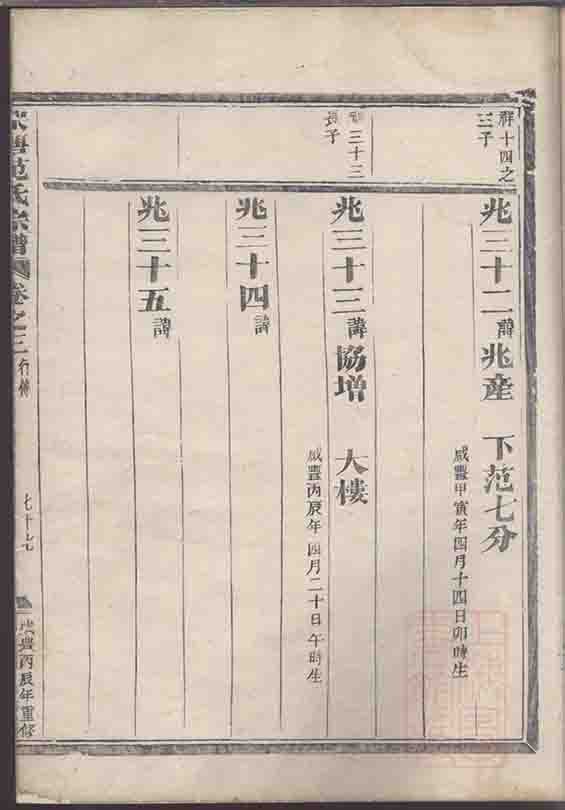 祥十四之
三子
兆三十二 諱 兆産 下范七分
咸豐甲寅年四月十四日卯時生
三十三
長子
兆三十三 諱 協增 大樓
咸豐丙辰年四月二十日午時生
兆三十四 諱
兆三十五 諱
范氏宗譜 卷之三 行傳
七十七
咸豐丙辰年重修